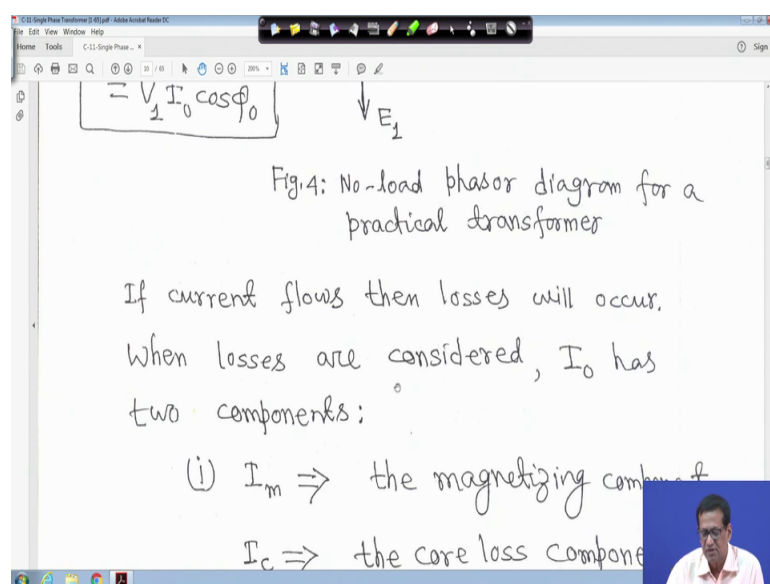 C-11-Single Phase Transformer [1-65].pdf - Adobe Acrobat Reader DC
File Edit View Window Help
Home Tools C-11-Single Phase ... × Sign
10 / 65 200%
= V1 I0 cosφ0
E1
Fig.4: No-load phasor diagram for a
practical transformer
If current flows then losses will occur.
When losses are considered, I0 has
two components:
(i) Im ⇒ the magnetizing component
Ic ⇒ the core loss compone